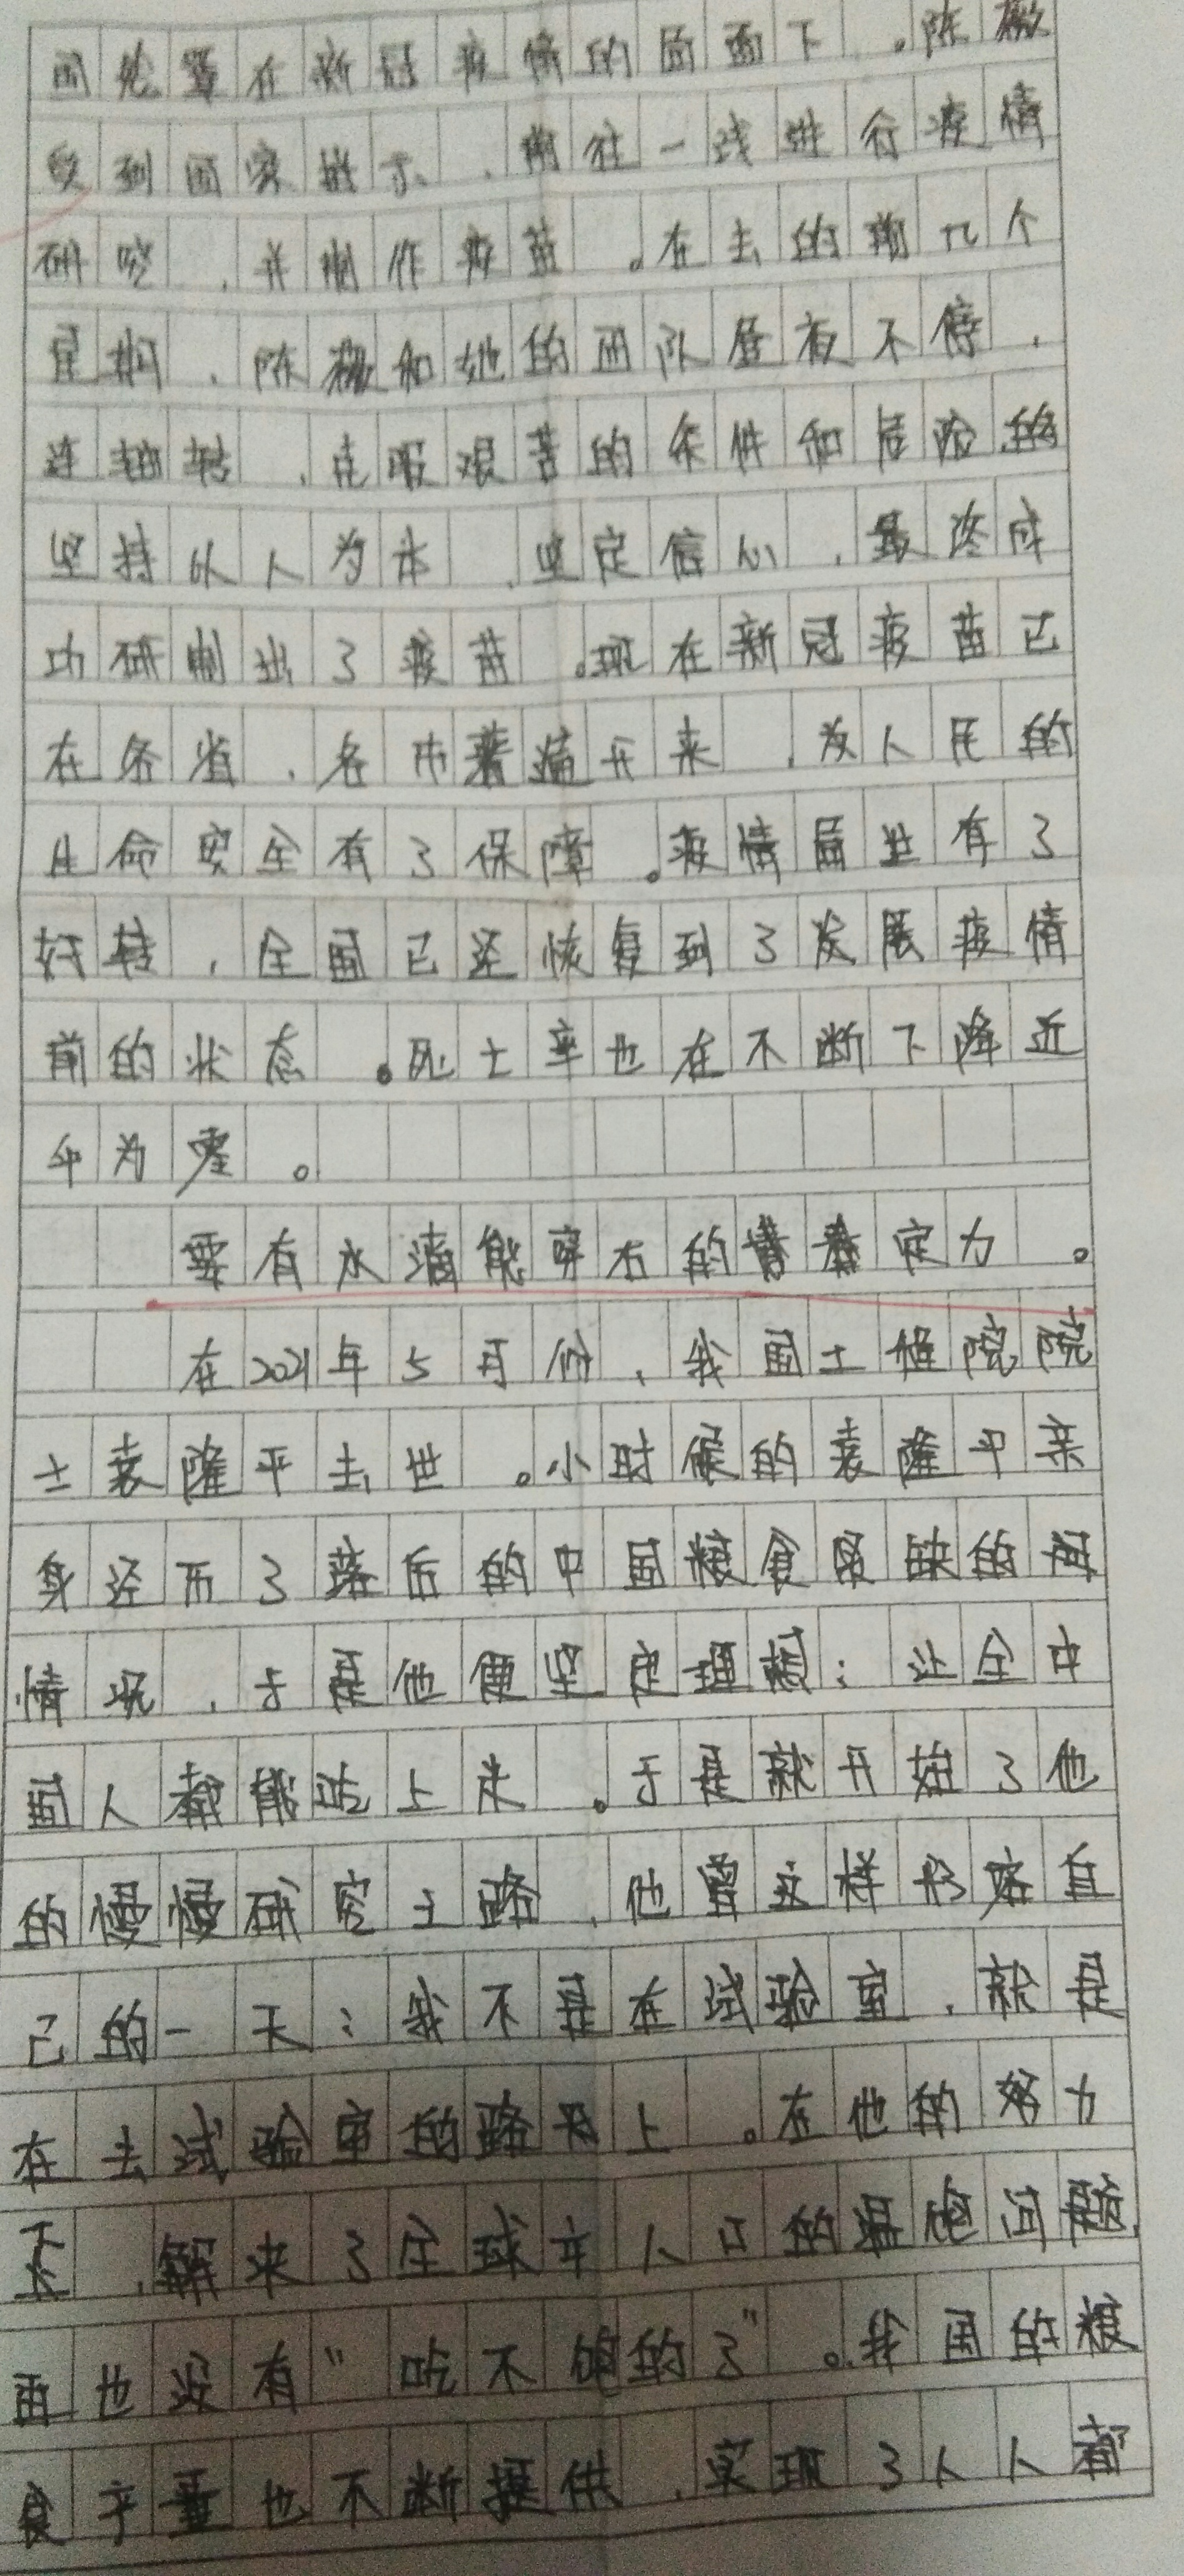 间笼罩在新冠疫情的局面下。陈薇
受到国家指示，前往一线进行疫情
研究，并制作疫苗。在去的前几个
星期，陈薇和她的团队昼夜不停，
连轴转，克服艰苦的条件和危险的
坚持以人为本，坚定信心，最终成
功研制出了疫苗。现在新冠疫苗已
在各省，各市普遍开来，为人民的
生命安全有了保障。疫情局势有了
好转，全国已经恢复到了发展疫情
前的状态。死亡率也在不断下降近
乎为零。
要有水滴能穿石的青春定力。
在2021年5月份，我国工程院院
士袁隆平去世。小时候的袁隆平亲
身经历了落后的中国粮食紧缺的
情况，于是他便坚定理想：让全中
国人都能吃上米。于是就开始了他
的慢慢研究之路，他曾这样形容自
己的一天：我不是在试验室，就是
在去试验室的路上。在他的努力
下，解决了全球半人口的温饱问题，
再也没有“吃不饱的了”。我国的粮
食产量也不断提供，实现了人人都